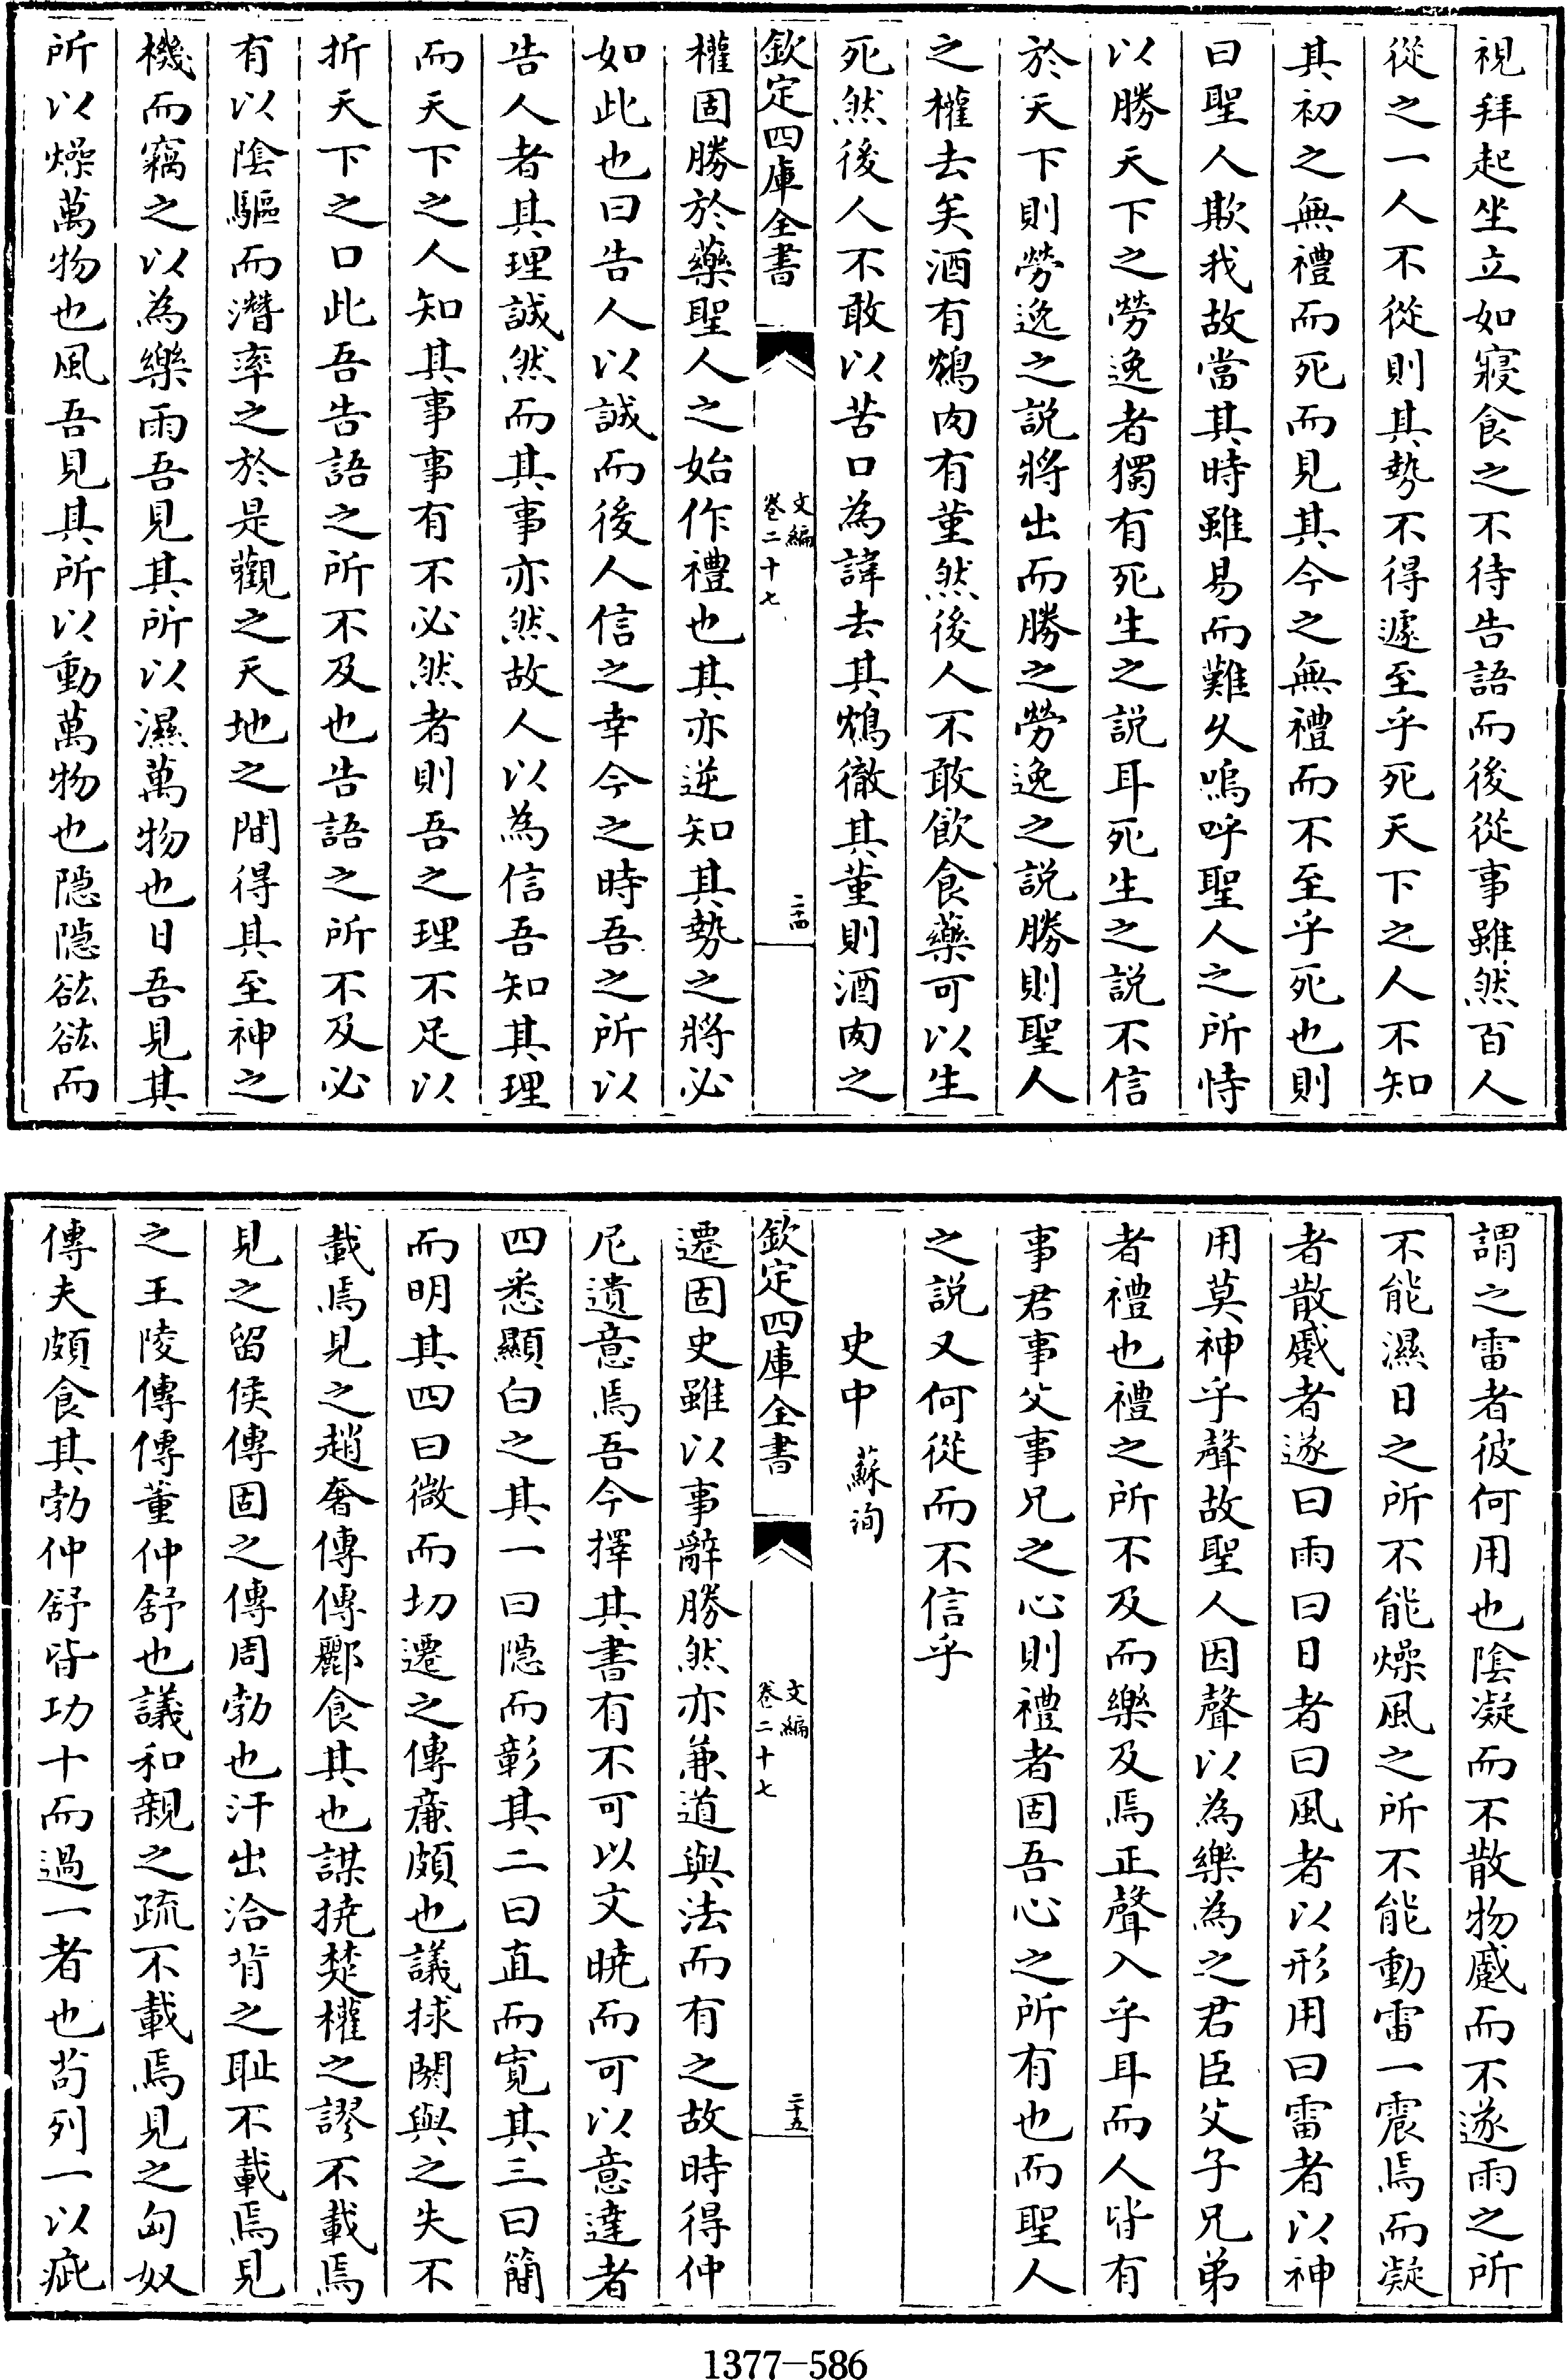 視拜起坐立如寢食之不待告語而後從事雖然百人
從之一人不從則其勢不得遽至乎死天下之人不知
其初之無禮而死而見其今之無禮而不至乎死也則
曰聖人欺我故當其時雖易而難久嗚呼聖人之所恃
以勝天下之勞逸者獨有死生之説耳死生之説不信
於天下則勞逸之説將出而勝之勞逸之説勝則聖人
之權去矣酒有鴆肉有堇然後人不敢飲食藥可以生
死然後人不敢以苦口為諱去其鴆徹其堇則酒肉之
欽定四庫全書
文編
卷二十七
二十四
權固勝於藥聖人之始作禮也其亦逆知其勢之將必
如此也曰告人以誠而後人信之幸今之時吾之所以
告人者其理誠然而其事亦然故人以為信吾知其理
而天下之人知其事事有不必然者則吾之理不足以
折天下之口此吾告語之所不及也告語之所不及必
有以陰驅而潛率之於是觀之天地之間得其至神之
機而竊之以為樂雨吾見其所以濕萬物也日吾見其
所以燥萬物也風吾見其所以動萬物也隱隱谹谹而
謂之雷者彼何用也陰凝而不散物蹙而不遂雨之所
不能濕日之所不能燥風之所不能動雷一震焉而凝
者散蹙者遂曰雨曰日者曰風者以形用曰雷者以神
用莫神乎聲故聖人因聲以為樂為之君臣父子兄弟
者禮也禮之所不及而樂及焉正聲入乎耳而人皆有
事君事父事兄之心則禮者固吾心之所有也而聖人
之説又何從而不信乎
史中 蘇洵
欽定四庫全書
文編
卷二十七
二十五
遷固史雖以事辭勝然亦兼道與法而有之故時得仲
尼遺意焉吾今擇其書有不可以文曉而可以意達者
四悉顯白之其一曰隱而彰其二曰直而寬其三曰簡
而明其四曰微而切遷之傳廉頗也議捄閼與之失不
載焉見之趙奢傳傳酈食其也謀撓楚權之謬不載焉
見之留侯傳固之傳周勃也汗出洽背之耻不載焉見
之王陵傳傳董仲舒也議和親之疏不載焉見之匈奴
傳夫頗食其勃仲舒皆功十而過一者也茍列一以疵
1377—586